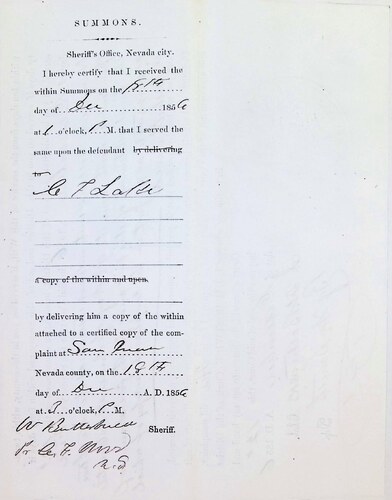 SUMMONS.
Sheriff's Office, Nevada city.
I hereby certify that I received the
within Summons on the
day of Dec 1856
at o'clock, P.M. that I served the
same upon the defendant by delivering
to
a copy of the within and upon.
by delivering him a copy of the within
attached to a certified copy of the com-
plaint at San Juan
Nevada county, on the 19th
day of Dec A. D. 1856
at o'clock, P.M.
W Butterfield Sheriff.